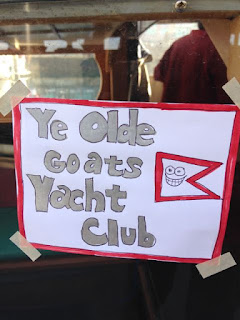 Ye Olde
Goats
Yacht
Club